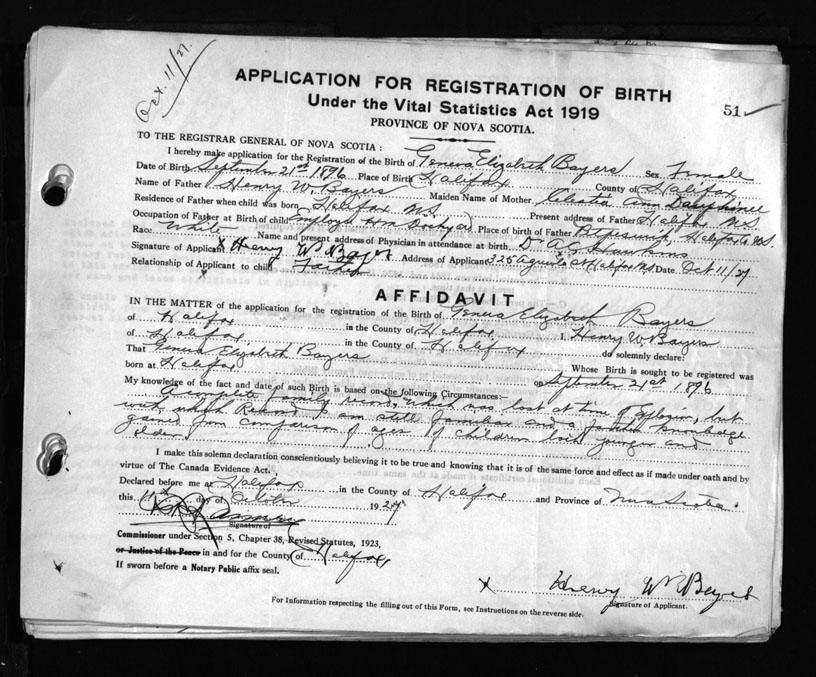 Oct. 11/27.
APPLICATION FOR REGISTRATION OF BIRTH
Under the Vital Statistics Act 1919
51
PROVINCE OF NOVA SCOTIA.
TO THE REGISTRAR GENERAL OF NOVA SCOTIA :
I hereby make application for the Registration of the Birth of Geneva Elizabeth Bayers Sex Female
Date of Birth September 21st 1896 Place of Birth Halifax County of Halifax
Name of Father Henry W. Bayers Maiden Name of Mother Celestia Ann Dauphinee
Residence of Father when child was born Halifax N.S. Present address of Father Halifax N.S.
Occupation of Father at Birth of child Employee Dockyard Place of birth of Father Halifax Co N.S.
Race White Name and present address of Physician in attendance at birth Dr A C Hawkins
Signature of Applicant x Henry W Bayers Address of Applicant 325 Halifax N.S. Date Oct 11/27
Relationship of Applicant to child Father
AFFIDAVIT
IN THE MATTER of the application for the registration of the Birth of Geneva Elizabeth Bayers
of Halifax in the County of Halifax I, Henry W. Bayers
of Halifax in the County of Halifax do solemnly declare:
That Geneva Elizabeth Bayers Whose Birth is sought to be registered was
born at Halifax on September 21st 1896
My knowledge of the fact and date of such Birth is based on the following Circumstances:
A complete family record, which was lost at time of Explosion, but
with which Record I am still familiar and a further knowledge
gained from comparison of ages of children both younger and
older
I make this solemn declaration conscientiously believing it to be true and knowing that it is of the same force and effect as if made under oath and by
virtue of The Canada Evidence Act.
Declared before me at Halifax in the County of Halifax and Province of Nova Scotia
this 11th day of October 1927
Signature of
Commissioner under Section 5, Chapter 38, Revised Statutes, 1923,
or Justice of the Peace in and for the County of Halifax
If sworn before a Notary Public affix seal.
x Henry W Bayers
Signature of Applicant.
For Information respecting the filling out of this Form, see Instructions on the reverse side.